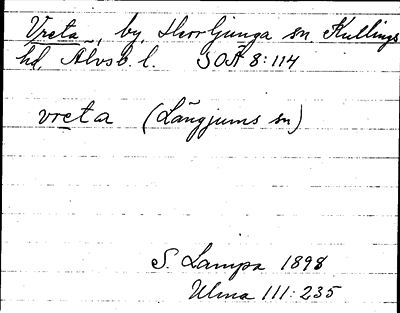 Vreta, by, Herrljunga sn, Kullings
hd, Älvsb. l. SOÄ 8:114
vreta (Längjums sn)
S. Lampa 1898
Ulma 111:235